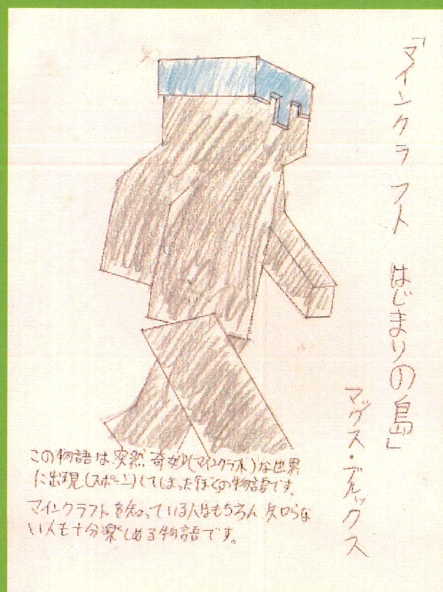 「マインクラフト はじまりの島」
マックス・ブルックス
この物語は突然奇妙(マインクラフト)な世界
に出現(スポーン)してしまったぼくの物語です。
マインクラフトを知っている人はもちろん、知らな
い人も十分楽しめる物語です。